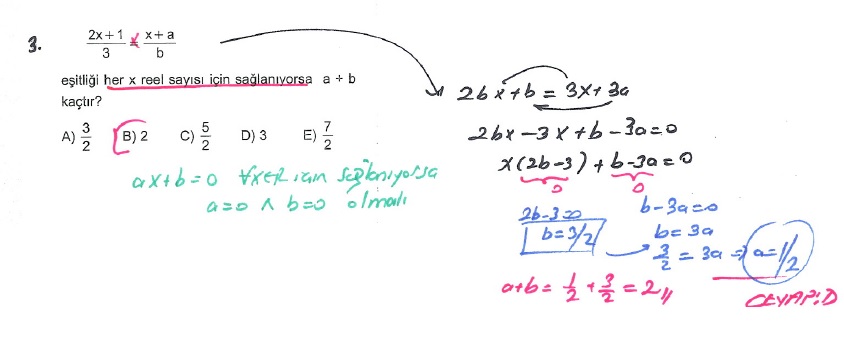 3. (2x+1)/3 = (x+a)/b
eşitliği her x reel sayısı için sağlanıyorsa a + b
kaçtır?
A) 3/2 B) 2 C) 5/2 D) 3 E) 7/2
ax+b=0 ∀x∈R için sağlanıyorsa
a=0 ∧ b=0 olmalı
2bx+b = 3x+3a
2bx-3x+b-3a=0
x(2b-3)+b-3a=0
0 0
2b-3=0
b=3/2
b-3a=0
b=3a
3/2 = 3a ⇒ a=1/2
a+b= 1/2 + 3/2 = 2//
CEVAP:D